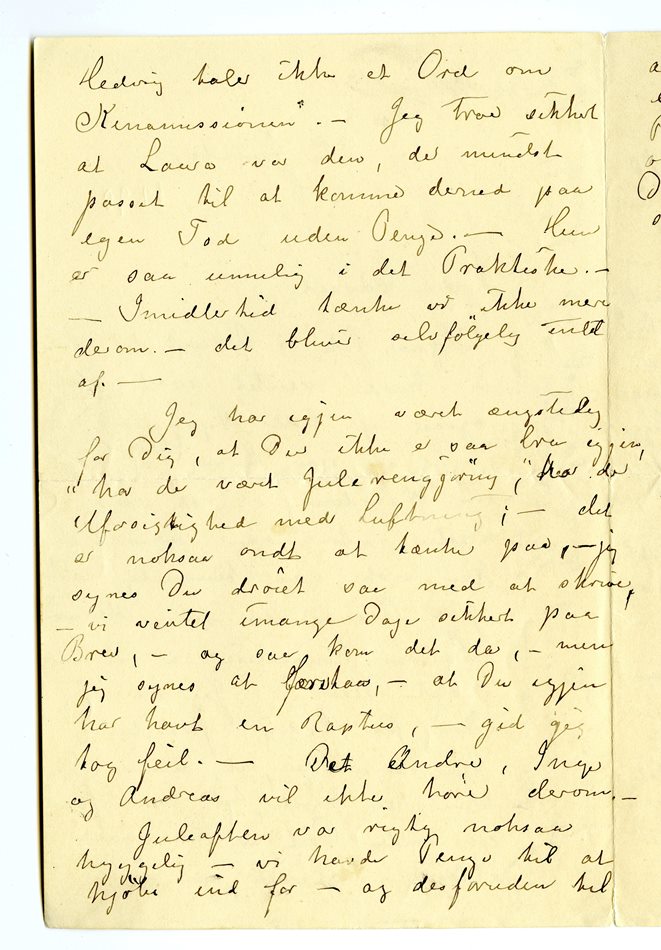 Hedvig taler ikke et Ord om
Kinamissionen". — Jeg tror sikkert
at Laura var den, der mindst
passet til at komme derned paa
egen Tod uden Penge. — Hun
er saa umulig i det Praktiske. —
— Imidlertid tænke vi ikke mere
derom. — det bliver selvfölgelig intet
af. —
Jeg har igjen været ængstelig
for Dig, at Du ikke er saa bra igjen,
"har de været Julerengjöring," har de
Uforsigtighed med Luftning; — det
er noksaa ondt at tænke paa, — jeg
synes Du dröiet saa med at skrive,
— vi ventet imange Dage sikkert paa
Brev, — og saa kom det da, — men
jeg synes at forstaa, — at Du igjen
har havt en Raptus, — gid jeg
tog feil. — Det Andre, Inga
og Andreas vil ikke höre derom. —
Juleaften var rigtig noksaa
hyggelig — vi havde Penge til at
kjöbe ind for — og desforuden til